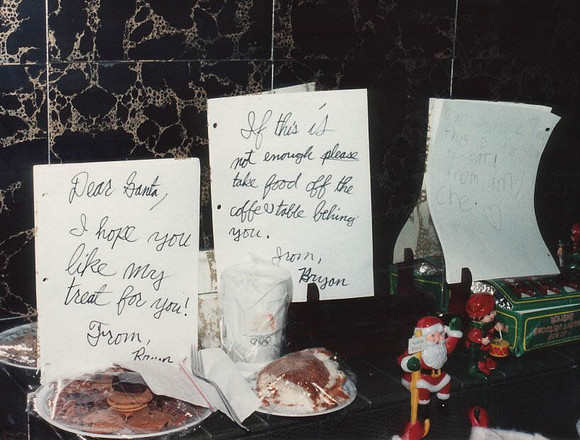 Dear Santa,
I hope you
like my
treat for you!
From,
If this is
not enough please
take food off the
coffee table behing
you.
From,
Bryson
this
from